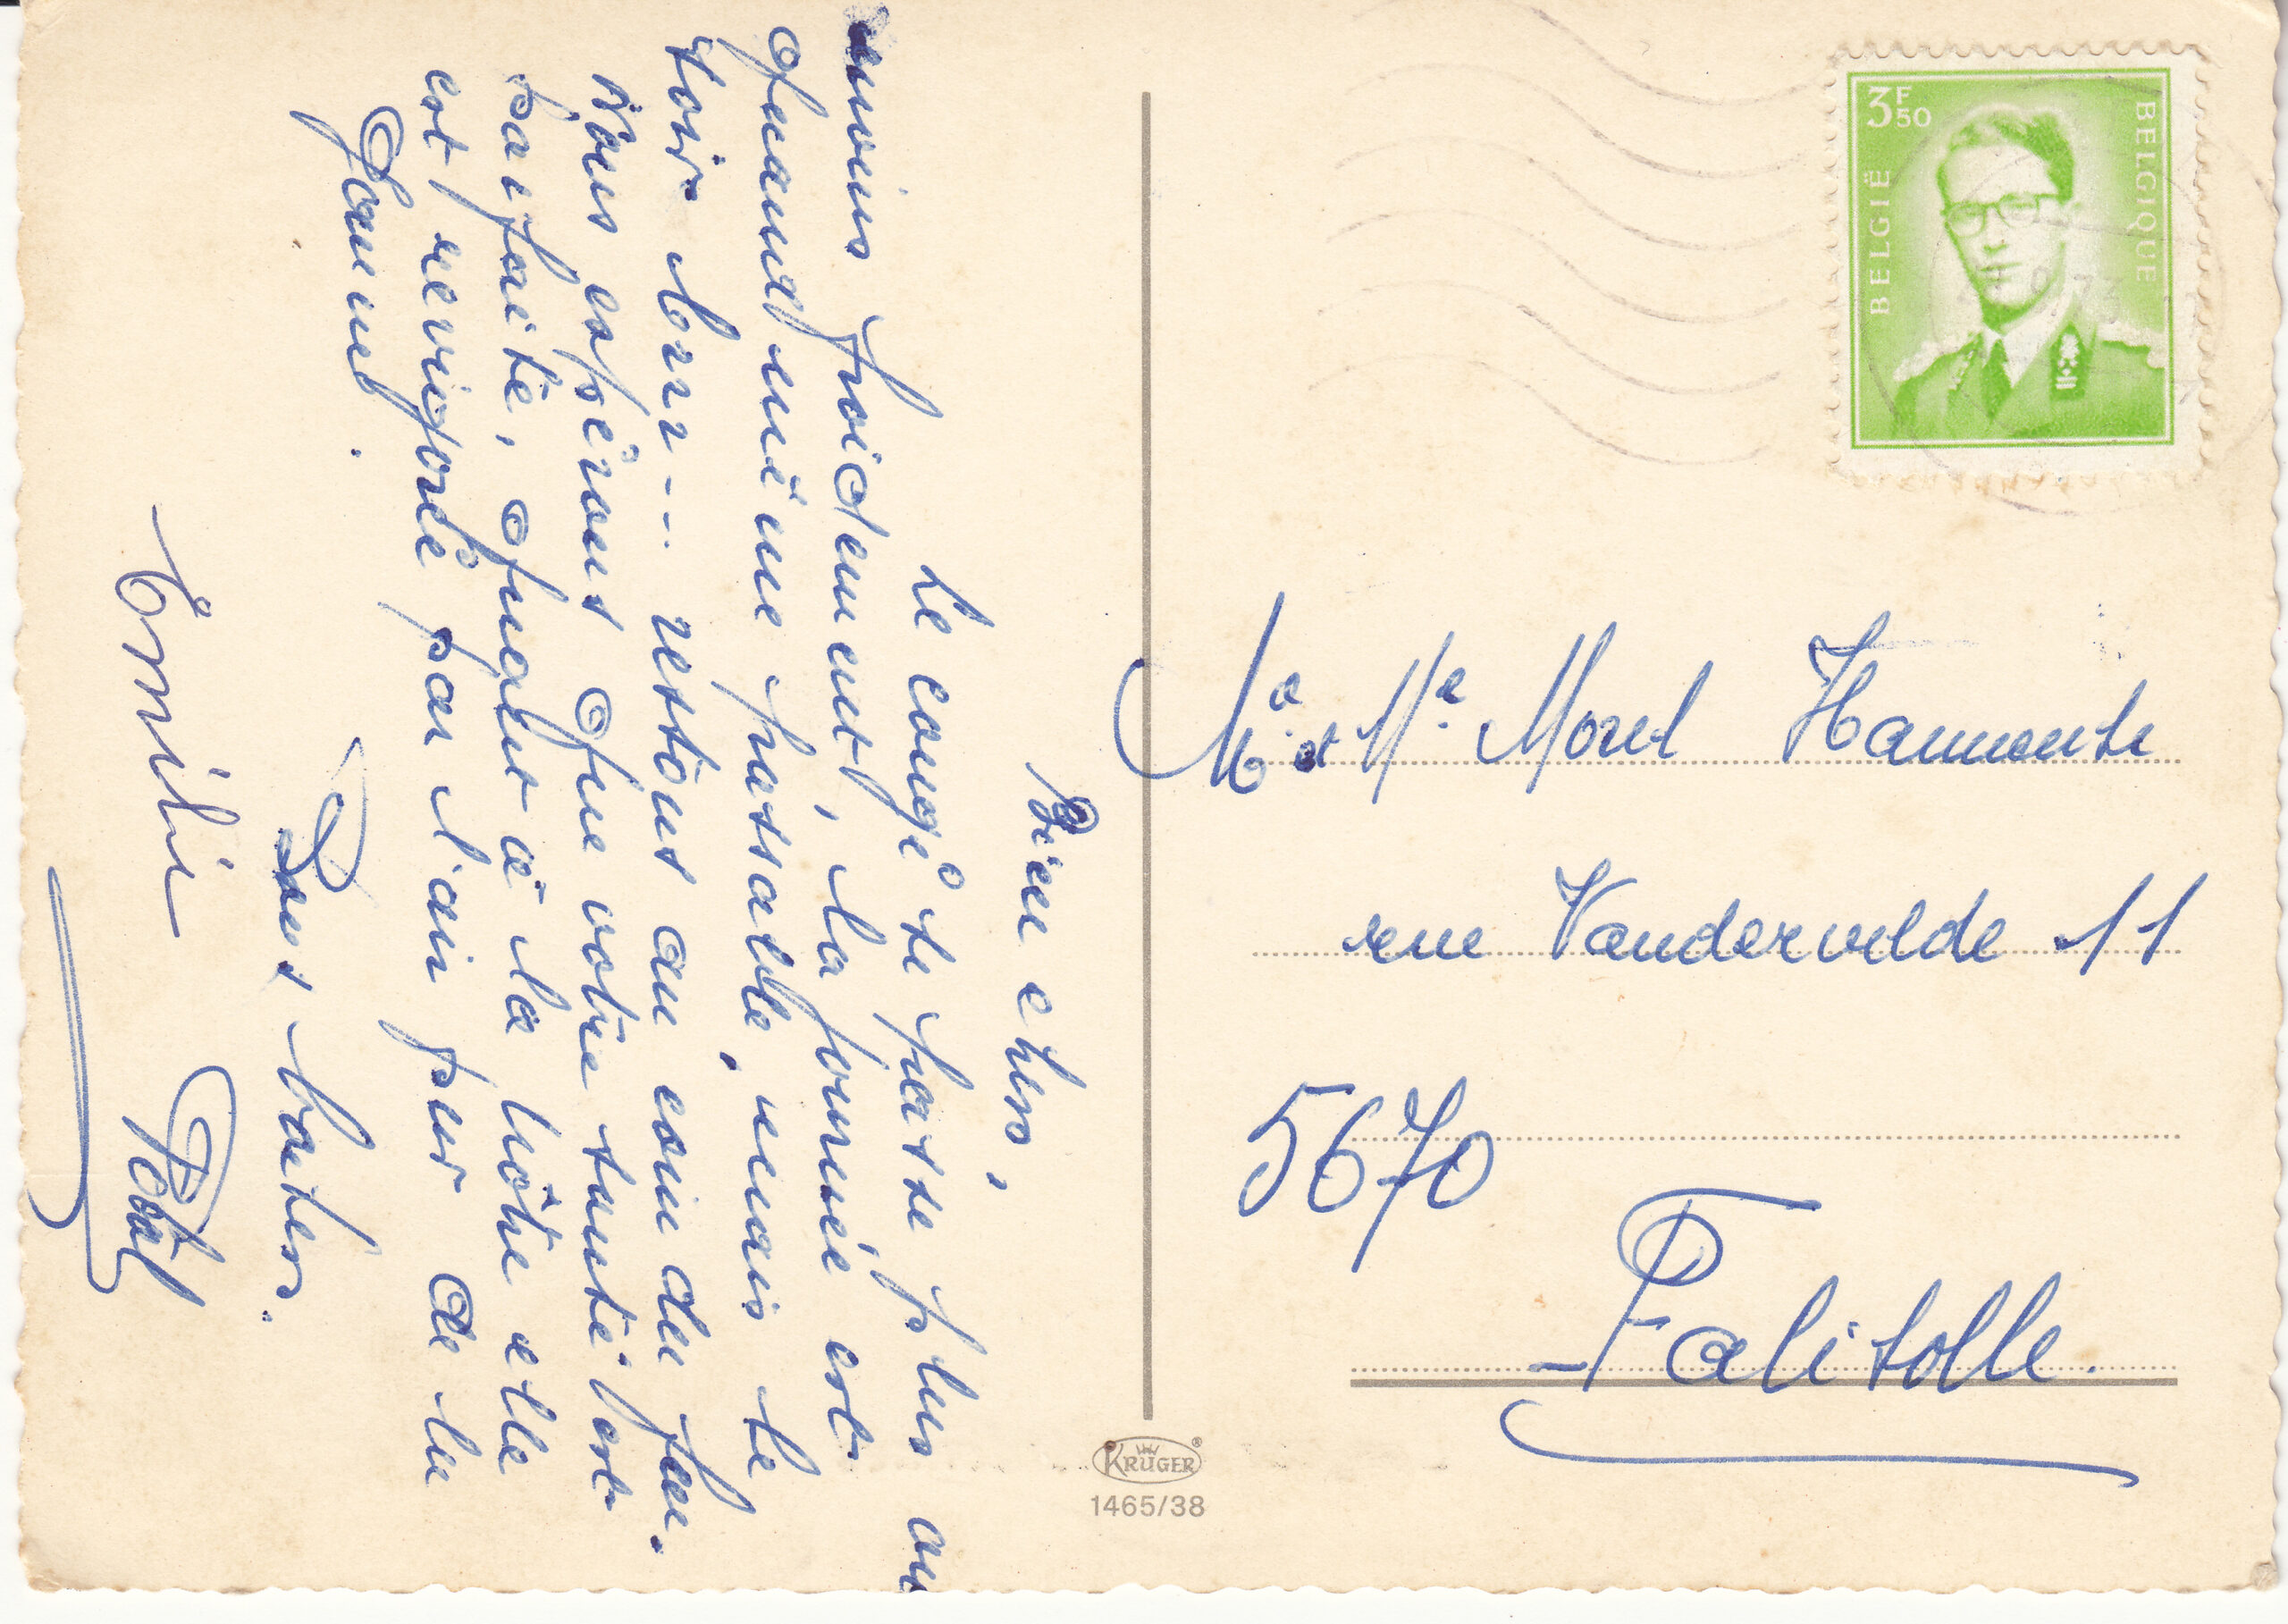 Bien chers,
Le congé se passe plus ou
moins froidement, la journée est
quand même passable, mais le
soir brrr... restons au coin du feu.
Nous espérons que votre santé est
parfaite, quant à la nôtre elle
est revigorée par l'air pur de la
Bons baisers.
Emilie Poal
3F50
BELGIË
BELGIQUE
Mr et Me Morel Hannante
rue Vandervelde 11
5670
Falisolle.
KRÜGER
1465/38